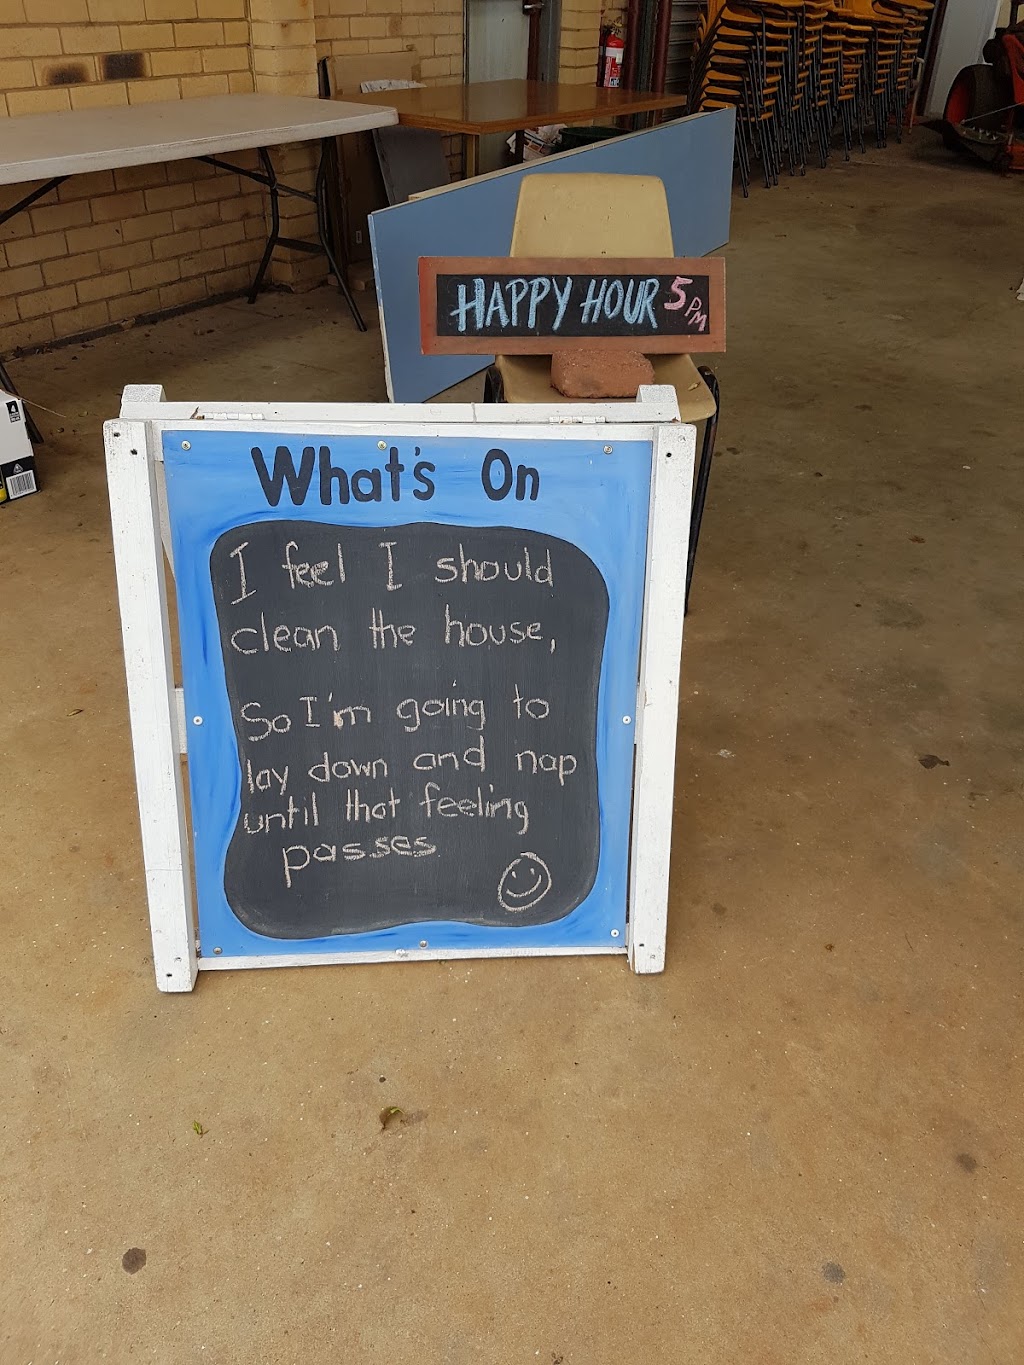 HAPPY HOUR 5 PM
What's On
I feel I should
clean the house,
So I'm going to
lay down and nap
until that feeling
passes